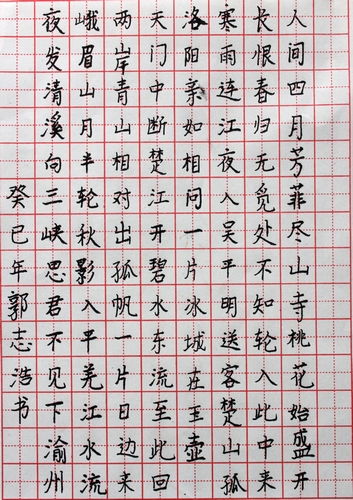 人间四月芳菲尽山寺桃花始盛开
长恨春归无觅处不知轮入此中来
寒雨连江夜入吴平明送客楚山孤
洛阳亲如相问一片冰城在玉壶
天门中断楚江开碧水东流至此回
两岸青山相对出孤帆一片日边来
峨眉山月半轮秋影入平羌江水流
夜发清溪向三峡思君不见下渝州
癸巳年郭志浩书